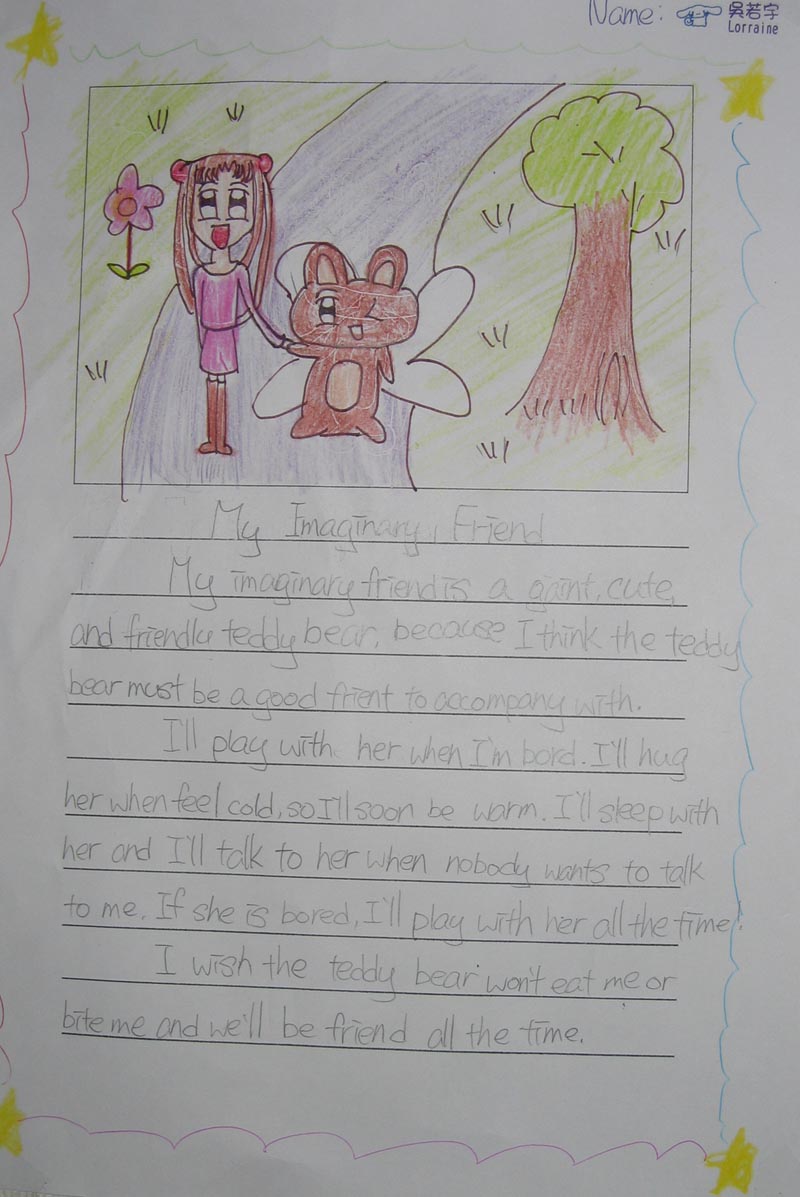 Name: 吳若宇
Lorraine
My Imaginary Friend
My imaginary friend is a gaint, cute,
and friendly teddy bear, because I think the teddy
bear must be a good frient to accompany with.
I'll play with her when I'm bord. I'll hug
her when feel cold, so I'll soon be warm. I'll sleep with
her and I'll talk to her when nobody wants to talk
to me. If she is bored, I'll play with her all the time!
I wish the teddy bear won't eat me or
bite me and we'll be friend all the time.